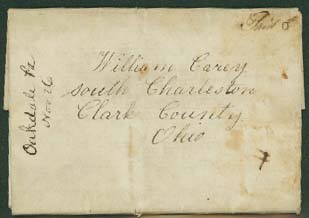 Paid 6
Oakdale Pa
Nov 26
William Carey
South Charleston
Clark County
Ohio